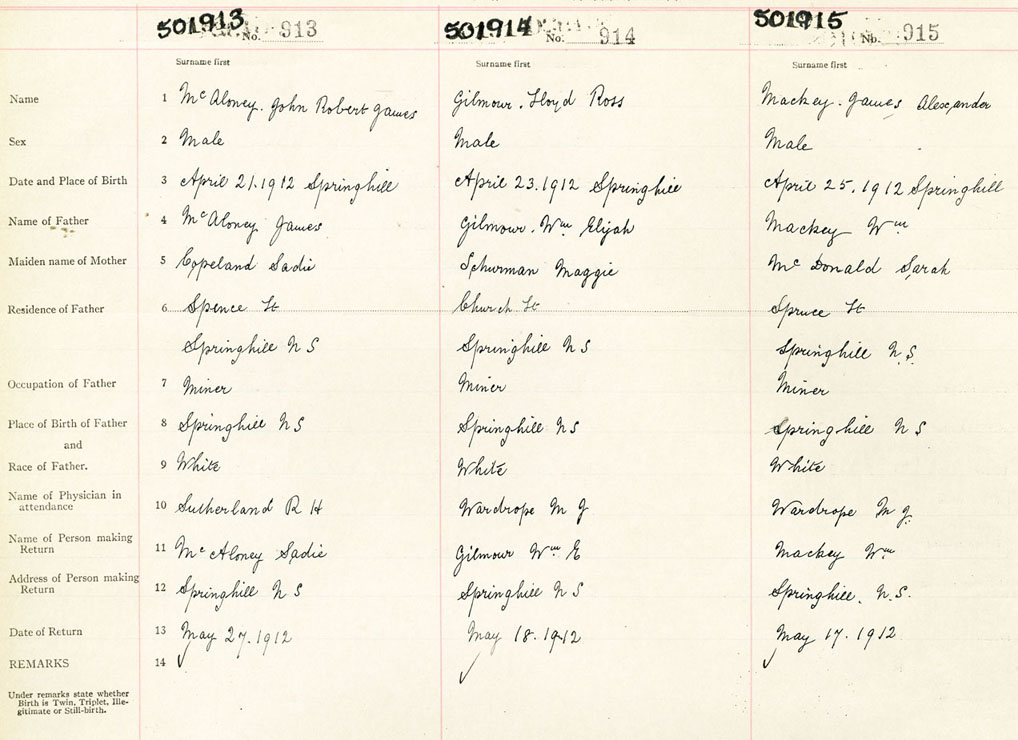 501913 No. 913 501914 No. 914 501915 No. 915
Surname first Surname first Surname first
Name 1 McAloney. John Robert James Gilmour. Lloyd Ross Mackey. James Alexander
Sex 2 Male Male Male
Date and Place of Birth 3 April 21.1912 Springhill April 23.1912 Springhill April 25.1912 Springhill
Name of Father 4 McAloney James Gilmour. Wm Elijah Mackey Wm
Maiden name of Mother 5 Copeland Sadie Schurman Maggie McDonald Sarah
Residence of Father 6 Spence St Church St Spruce St
Springhill N S Springhill N S Springhill N.S.
Occupation of Father 7 Miner Miner Miner
Place of Birth of Father 8 Springhill N S Springhill N S Springhill N S
and
Race of Father. 9 White White White
Name of Physician in
attendance 10 Sutherland R H Wardrope M J Wardrope M J.
Name of Person making
Return 11 McAloney Sadie Gilmour Wm E Mackey Wm
Address of Person making
Return 12 Springhill N S Springhill N S Springhill. N.S.
Date of Return 13 May 27.1912 May 18.1912 May 17.1912
REMARKS 14
Under remarks state whether
Birth is Twin, Triplet, Ille-
gitimate or Still-birth.